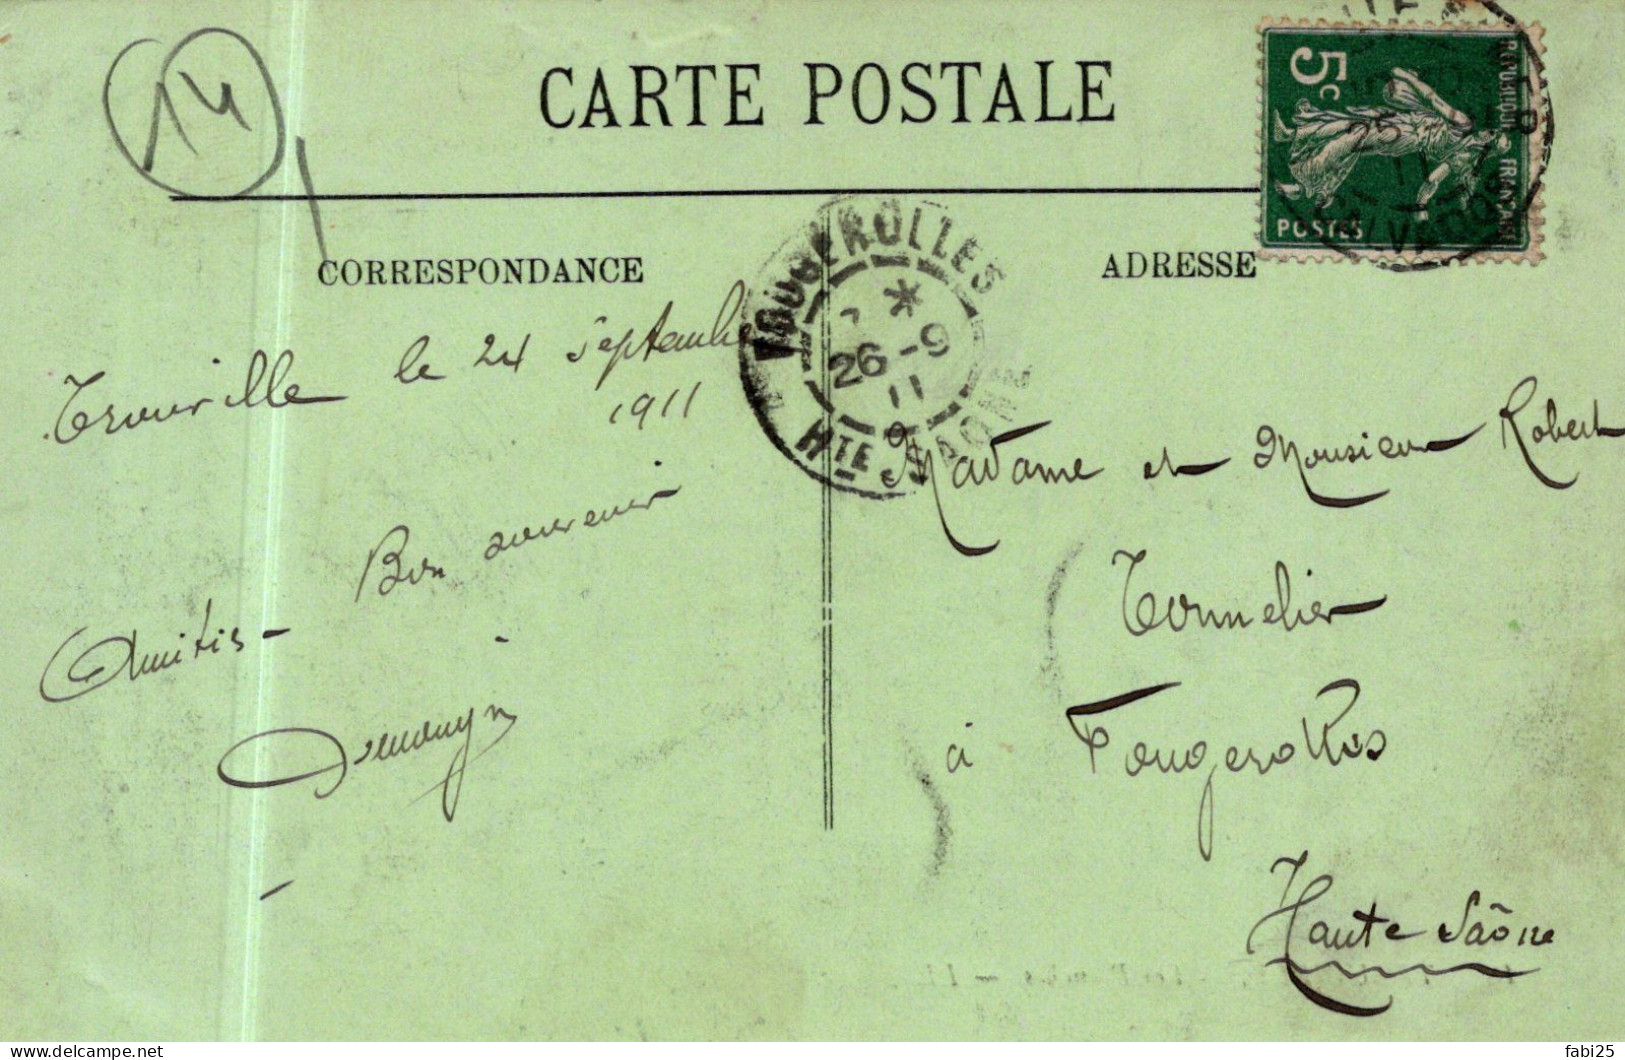 14
CARTE POSTALE
5c
REPUBLIQUE FRANÇAISE
POSTES
25
11
CALVADOS
CORRESPONDANCE
ADRESSE
FOUGEROLLES
26-9
11
HTE SAONE
Trouville le 24 Septembre
1911
Bon souvenir
Amitiés
Madame et Monsieur Robert
Tonnelier
à Fougerolles
Haute Saône
fabi25